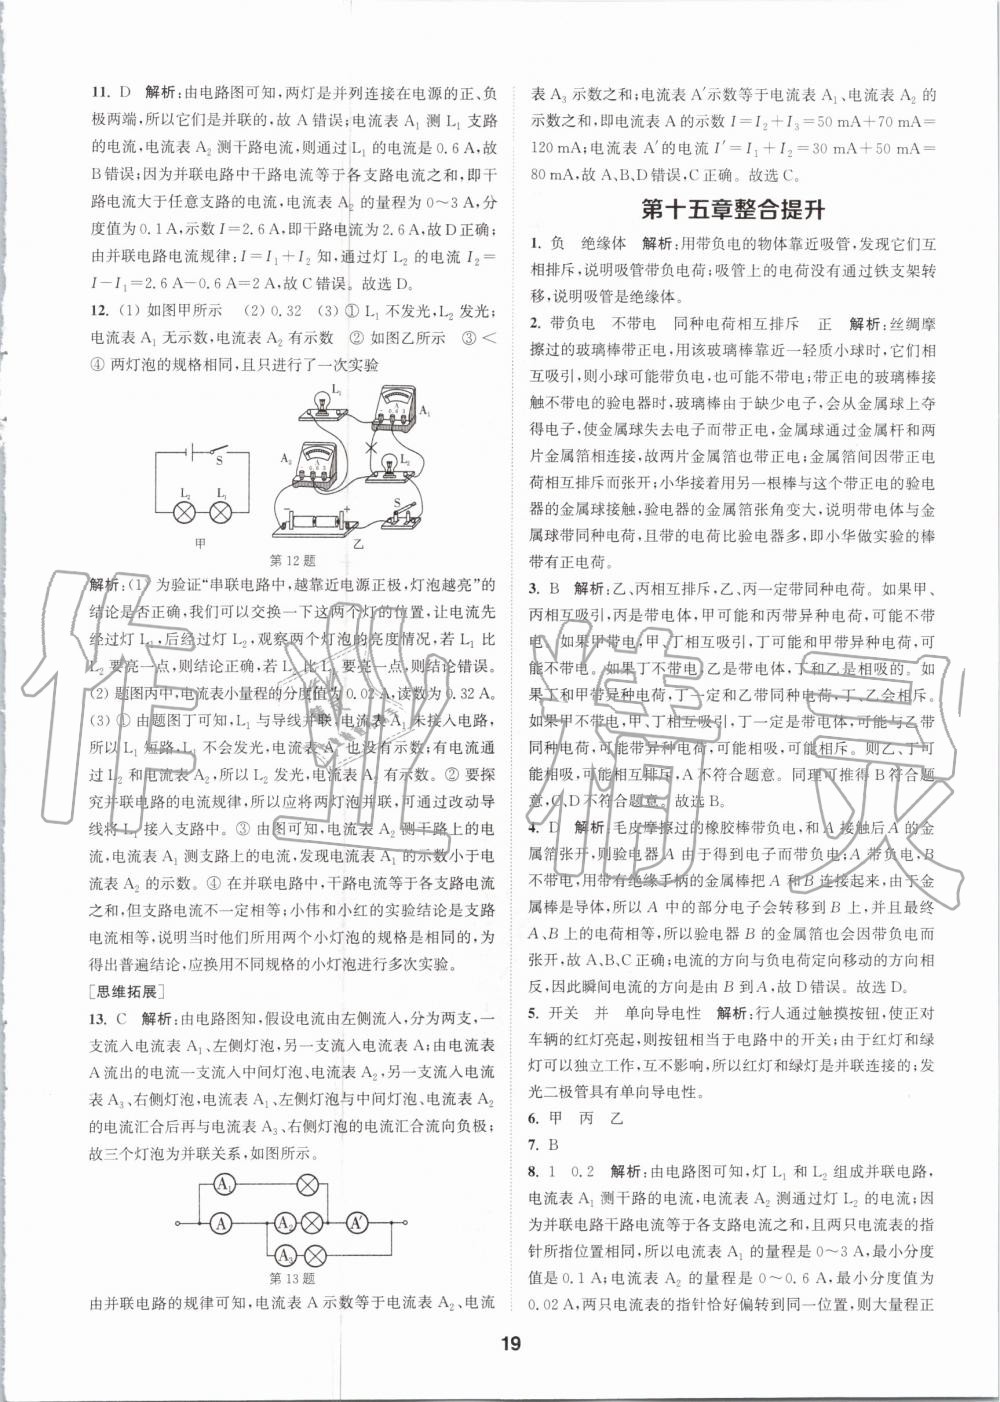 11. D 解析:由电路图可知,两灯是并列连接在电源的正、负
极两端,所以它们是并联的,故 A 错误;电流表 A₁ 测 L₁ 支路
的电流,电流表 A₂ 测干路电流,则通过 L₁ 的电流为 0.6 A,故
B错误;因为并联电路中干路电流等于各支路电流之和,即干
路电流大于任意支路的电流,电流表 A₂ 的量程为 0～3 A,分
度值为 0.1 A,示数 I=2.6 A,即干路电流为 2.6 A,故 D 正确;
由并联电路电流规律:I=I₁+I₂ 知,通过灯 L₂ 的电流 I₂=
I-I₁=2.6 A-0.6 A=2 A,故 C 错误。故选 D。
12. (1) 如图甲所示 (2) 0.32 (3) ① L₁ 不发光,L₂ 发光;
电流表 A₁ 无示数,电流表 A₂ 有示数 ② 如图乙所示 ③ <
④ 两灯泡的规格相同,且只进行了一次实验
S
L₂ L₁
甲
L₁
A
- 0.6 3
A₁
A₂
A
- 0.6 3
L₂
S
- +
乙
第12题
解析:(1) 为验证“串联电路中,越靠近电源正极,灯泡越亮”的
结论是否正确,我们可以交换一下这两个灯的位置,让电流先
经过灯 L₁,后经过灯 L₂,观察两个灯泡的亮度情况,若 L₁ 比
L₂ 要亮一点,则结论正确,若 L₂ 比 L₁ 要亮一点,则结论错误。
(2) 题图丙中,电流表小量程的分度值为 0.02 A,读数为 0.32 A。
(3) ① 由题图丁可知,L₁ 与导线并联,电流表 A₁ 未接入电路,
所以 L₁ 短路,不会发光,电流表 A₁ 也没有示数;有电流通
过 L₂ 和电流表 A₂,所以 L₂ 发光,电流表 A₂ 有示数。② 要探
究并联电路的电流规律,所以应将两灯泡并联,可通过改动导
线将 L₁ 接入支路中。③ 由图可知,电流表 A₂ 测干路上的电
流,电流表 A₁ 测支路上的电流,发现电流表 A₁ 的示数小于电
流表 A₂ 的示数。④ 在并联电路中,干路电流等于各支路电流
之和,但支路电流不一定相等;小伟和小红的实验结论是支路
电流相等,说明当时他们所用两个小灯泡的规格是相同的,为
得出普遍结论,应换用不同规格的小灯泡进行多次实验。
[思维拓展]
13. C 解析:由电路图知,假设电流由左侧流入,分为两支,一
支流入电流表 A₁、左侧灯泡,另一支流入电流表 A;由电流表
A 流出的电流一支流入中间灯泡、电流表 A₂,另一支流入电流
表 A₃、右侧灯泡,电流表 A₁、左侧灯泡与中间灯泡、电流表 A₂
的电流汇合后再与电流表 A₃、右侧灯泡的电流汇合流向负极;
故三个灯泡为并联关系,如图所示。
A₁
A A₂ A′
A₃
第13题
由并联电路的规律可知,电流表 A 示数等于电流表 A₂、电流
表 A₃ 示数之和;电流表 A′示数等于电流表 A₁、电流表 A₂ 的
示数之和,即电流表 A 的示数 I=I₂+I₃=50 mA+70 mA=
120 mA;电流表 A′的电流 I′=I₁+I₂=30 mA+50 mA=
80 mA,故 A、B、D 错误,C 正确。故选 C。
第十五章整合提升
1. 负 绝缘体 解析:用带负电的物体靠近吸管,发现它们互
相排斥,说明吸管带负电荷;吸管上的电荷没有通过铁支架转
移,说明吸管是绝缘体。
2. 带负电 不带电 同种电荷相互排斥 正 解析:丝绸摩
擦过的玻璃棒带正电,用该玻璃棒靠近一轻质小球时,它们相
互吸引,则小球可能带负电,也可能不带电;带正电的玻璃棒接
触不带电的验电器时,玻璃棒由于缺少电子,会从金属球上夺
得电子,使金属球失去电子而带正电,金属球通过金属杆和两
片金属箔相连接,故两片金属箔也带正电;金属箔间因带正电
荷相互排斥而张开;小华接着用另一根棒与这个带正电的验电
器的金属球接触,验电器的金属箔张角变大,说明带电体与金
属球带同种电荷,且带电体的电荷比验电器多,即小华做实验的棒
带有正电荷。
3. B 解析:乙、丙相互排斥,乙、丙一定带同种电荷。如果甲、
丙相互吸引,丙是带电体,甲可能和丙带异种电荷,可能不带
电。如果甲带电,甲、丁相互吸引,丁可能和甲带异种电荷,可
能不带电。如果丁不带电,乙是带电体,丁和乙是相吸的。如
果丁和甲带异种电荷,丁一定和乙带同种电荷,丁、乙会相斥。
如果甲不带电,甲、丁相互吸引,丁一定是带电体,可能与乙带
同种电荷,可能带异种电荷,可能相吸,可能相斥。则乙、丁可
能相互吸引,可能相互排斥,A 不符合题意。同理可推得 B 符合题
意,C、D 不符合题意。故选 B。
4. D 解析:毛皮摩擦过的橡胶棒带负电,和 A 接触后 A 的金
属箔张开,则验电器 A 由于得到电子而带负电;A 带负电,B
不带电,用带有绝缘手柄的金属棒把 A 和 B 连接起来,由于金
属棒是导体,所以 A 中的部分电子会转移到 B 上,并且最终
A、B 上的电荷相等,所以验电器 B 的金属箔也会因带负电而
张开,故 A、B、C 正确;电流的方向与负电荷定向移动的方向相
反,因此瞬间电流的方向是由 B 到 A,故 D 错误。故选 D。
5. 开关 并 单向导电性 解析:行人通过触摸按钮,使正对
车辆的红灯亮起,则按钮相当于电路中的开关;由于红灯和绿
灯可以独立工作,互不影响,所以红灯和绿灯是并联连接的;发
光二极管具有单向导电性。
6. 甲 丙 乙
7. B
8. 1 0.2 解析:由电路图可知,灯 L₁ 和 L₂ 组成并联电路,
电流表 A₁ 测干路的电流,电流表 A₂ 测灯 L₂ 的电流;因
为并联电路干路电流等于各支路电流之和,且两只电流表的指
针所指位置相同,所以电流表 A₁ 的量程是 0～3 A,最小分度
值是 0.1 A;电流表 A₂ 的量程是 0～0.6 A,最小分度值为
0.02 A,两只电流表的指针恰好偏转到同一位置,则大量程正
19
作业精灵